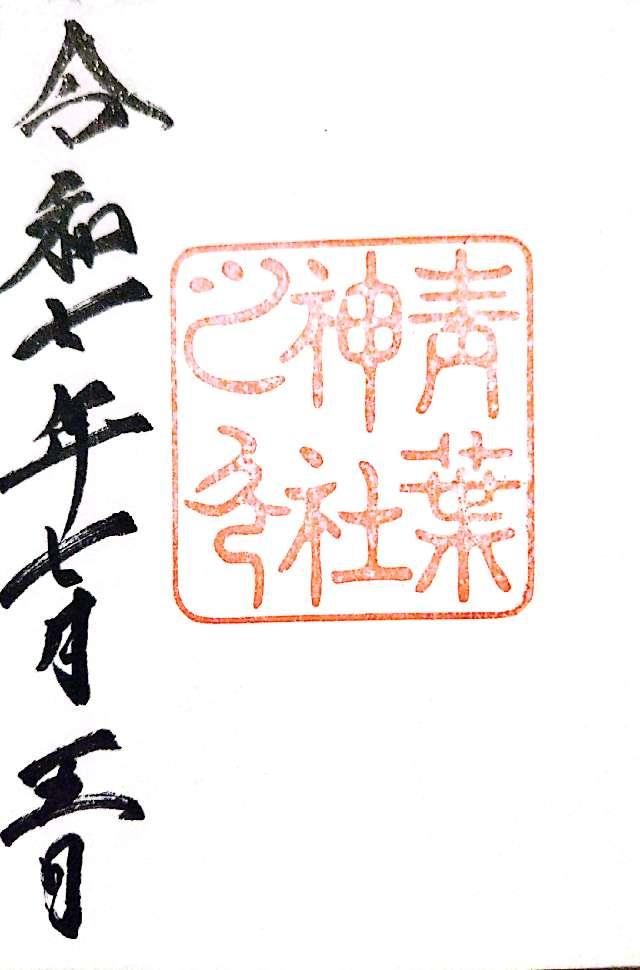 青葉
神社
之印
令和七年七月五日